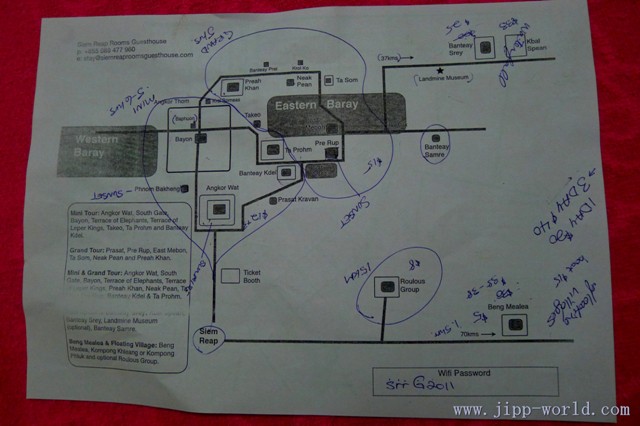 Siem Reap Rooms Guesthouse
GRAND
$25
Banteay Srey
Kbal Spean
(37kms)
Landmine Museum
Banteay Prei
Preah Khan
Neak Pean
Ta Som
MINI
5-6hrs
Angkor Thom
Eastern Baray
Western Baray
Takeo
Bayon
Ta Prohm
Pre Rup
Banteay Samre
Banteay Kdei
$15
SUNSET
Phnom Bakheng
SUNSET
Angkor Wat
Prasat Kravan
1 DAY $20
3 DAY $40
Mini Tour: Angkor Wat, South Gate,
Bayon, Terrace of Elephants, Terrace of
Leper Kings, Takeo, Ta Prohm and Banteay
Kdei.
Grand Tour: Prasat, Pre Rup, East Mebon,
Ta Som, Neak Pean and Preah Khan.
Mini & Grand Tour: Angkor Wat, South
Gate, Bayon, Terrace of Elephants, Terrace
Leper Kings, Preah Khan, Neak Pean, Ta
Banteay Kdei & Ta Prohm.
Ticket Booth
$8
Roulous Group
floating villages
boat $15
Beng Mealea
70kms
Banteay Srey, Landmine Museum
(optional), Banteay Samre.
Beng Mealea & Floating Village: Beng
Mealea, Kompong Khleang or Kompong
Phluk and optional Roulous Group.
Siem Reap
Wifi Password
srrG2011
www.jipp-world.com